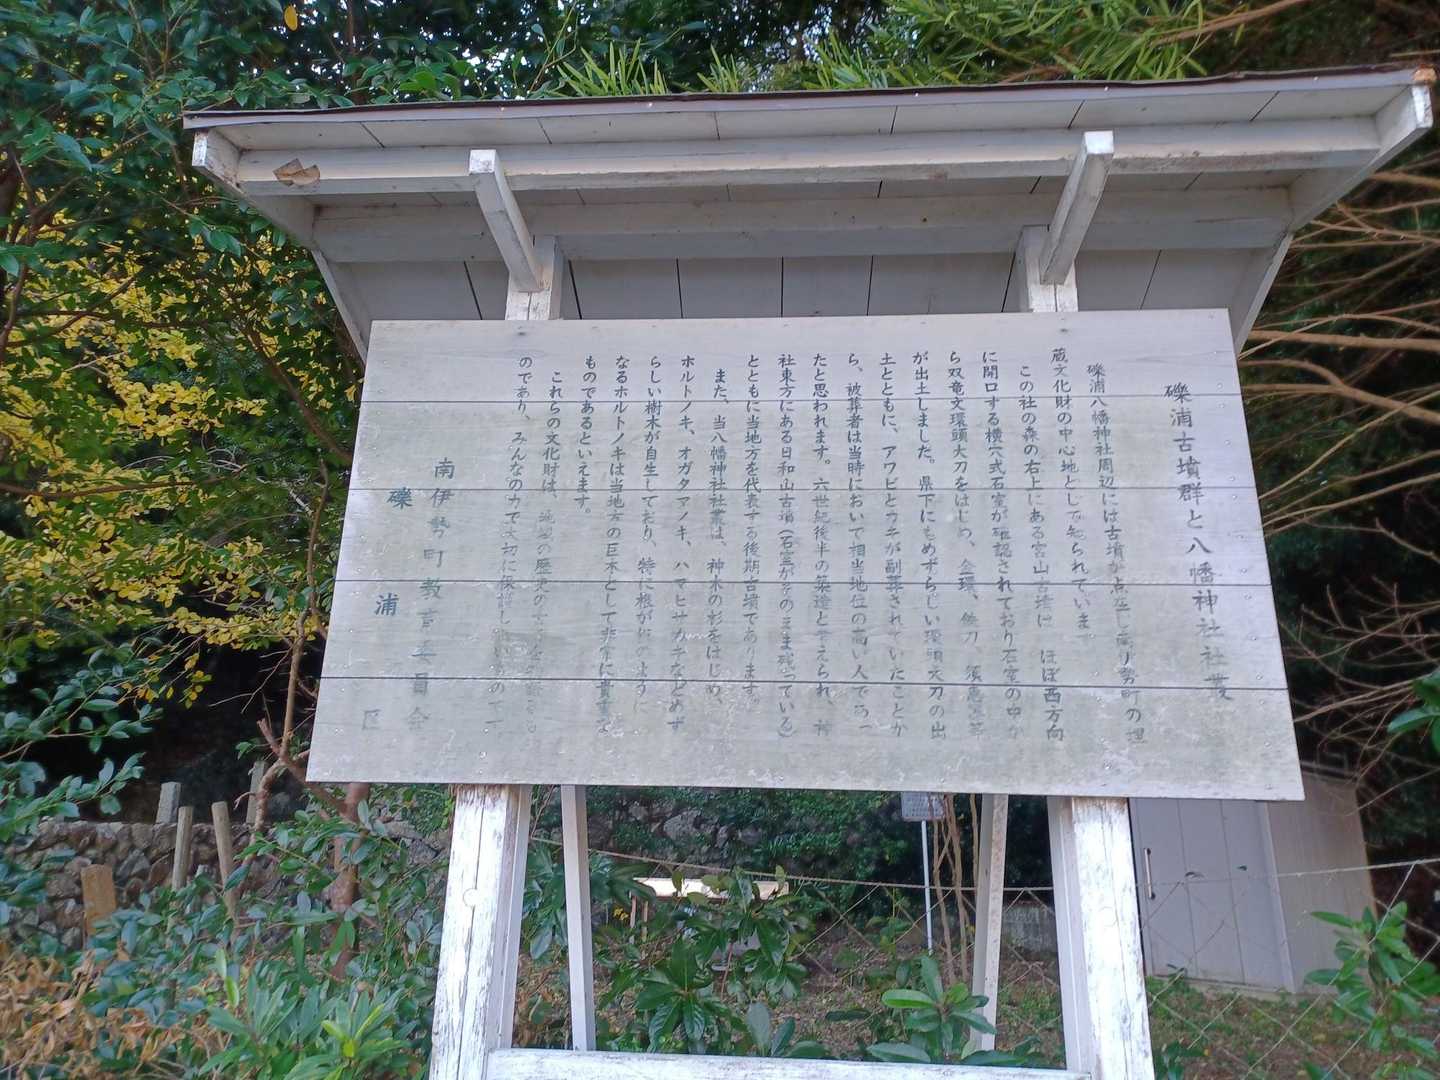 礫浦古墳群と八幡神社社叢
礫浦八幡神社周辺には古墳が点在し南伊勢町の埋
蔵文化財の中心地として知られています
この社の森の右上にある宮山古墳は ほぼ西方向
に開口する横穴式石室が確認されており石室の中か
ら双竜文環頭大刀をはじめ、金環、鉄刀、須恵器等
が出土しました。県下にもめずらしい環頭大刀の出
土とともに、アワビとカキが副葬されていたことか
ら、被葬者は当時において相当地位の高い人であっ
たと思われます。六世紀後半の築造と考えられ、神
社東方にある日和山古墳(石室がそのまま残っている)
とともに当地方を代表する後期古墳であります。
また、当八幡神社社叢は、神木の杉をはじめ、
ホルトノキ、オガタマノキ、ハマヒサカキなどめず
らしい樹木が自生しており、特に根が板のように
なるホルトノキは当地方の巨木として非常に貴重な
ものであるといえます。
これらの文化財は、地域の歴史の
のであり、みんなの力で大切に保護し のです
南伊勢町教育委員会
礫浦区